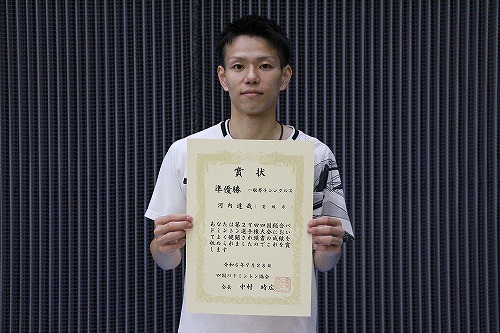 賞状
準優勝 一般男子シングルス
河内達哉(愛媛県)
あなたは第27回四国総合バ
ドミントン選手権大会におい
てよく健闘され頭書の成績を
収められましたのでこれを賞
します
令和6年7月28日
四国バドミントン協会
会長 中村 時広